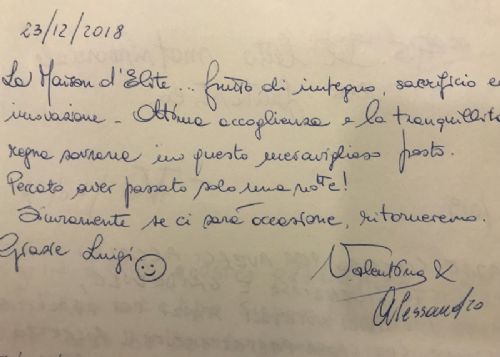 23/12/2018
La Maison d'Elite... frutto di impegno, sacrificio e
innovazione - Ottima accoglienza e la tranquillità
regna sovrana in questo meraviglioso posto.
Peccato aver passato solo una notte!
Sicuramente se ci sarà occasione, ritorneremo.
Grazie Luigi
Valentina &
Alessandro